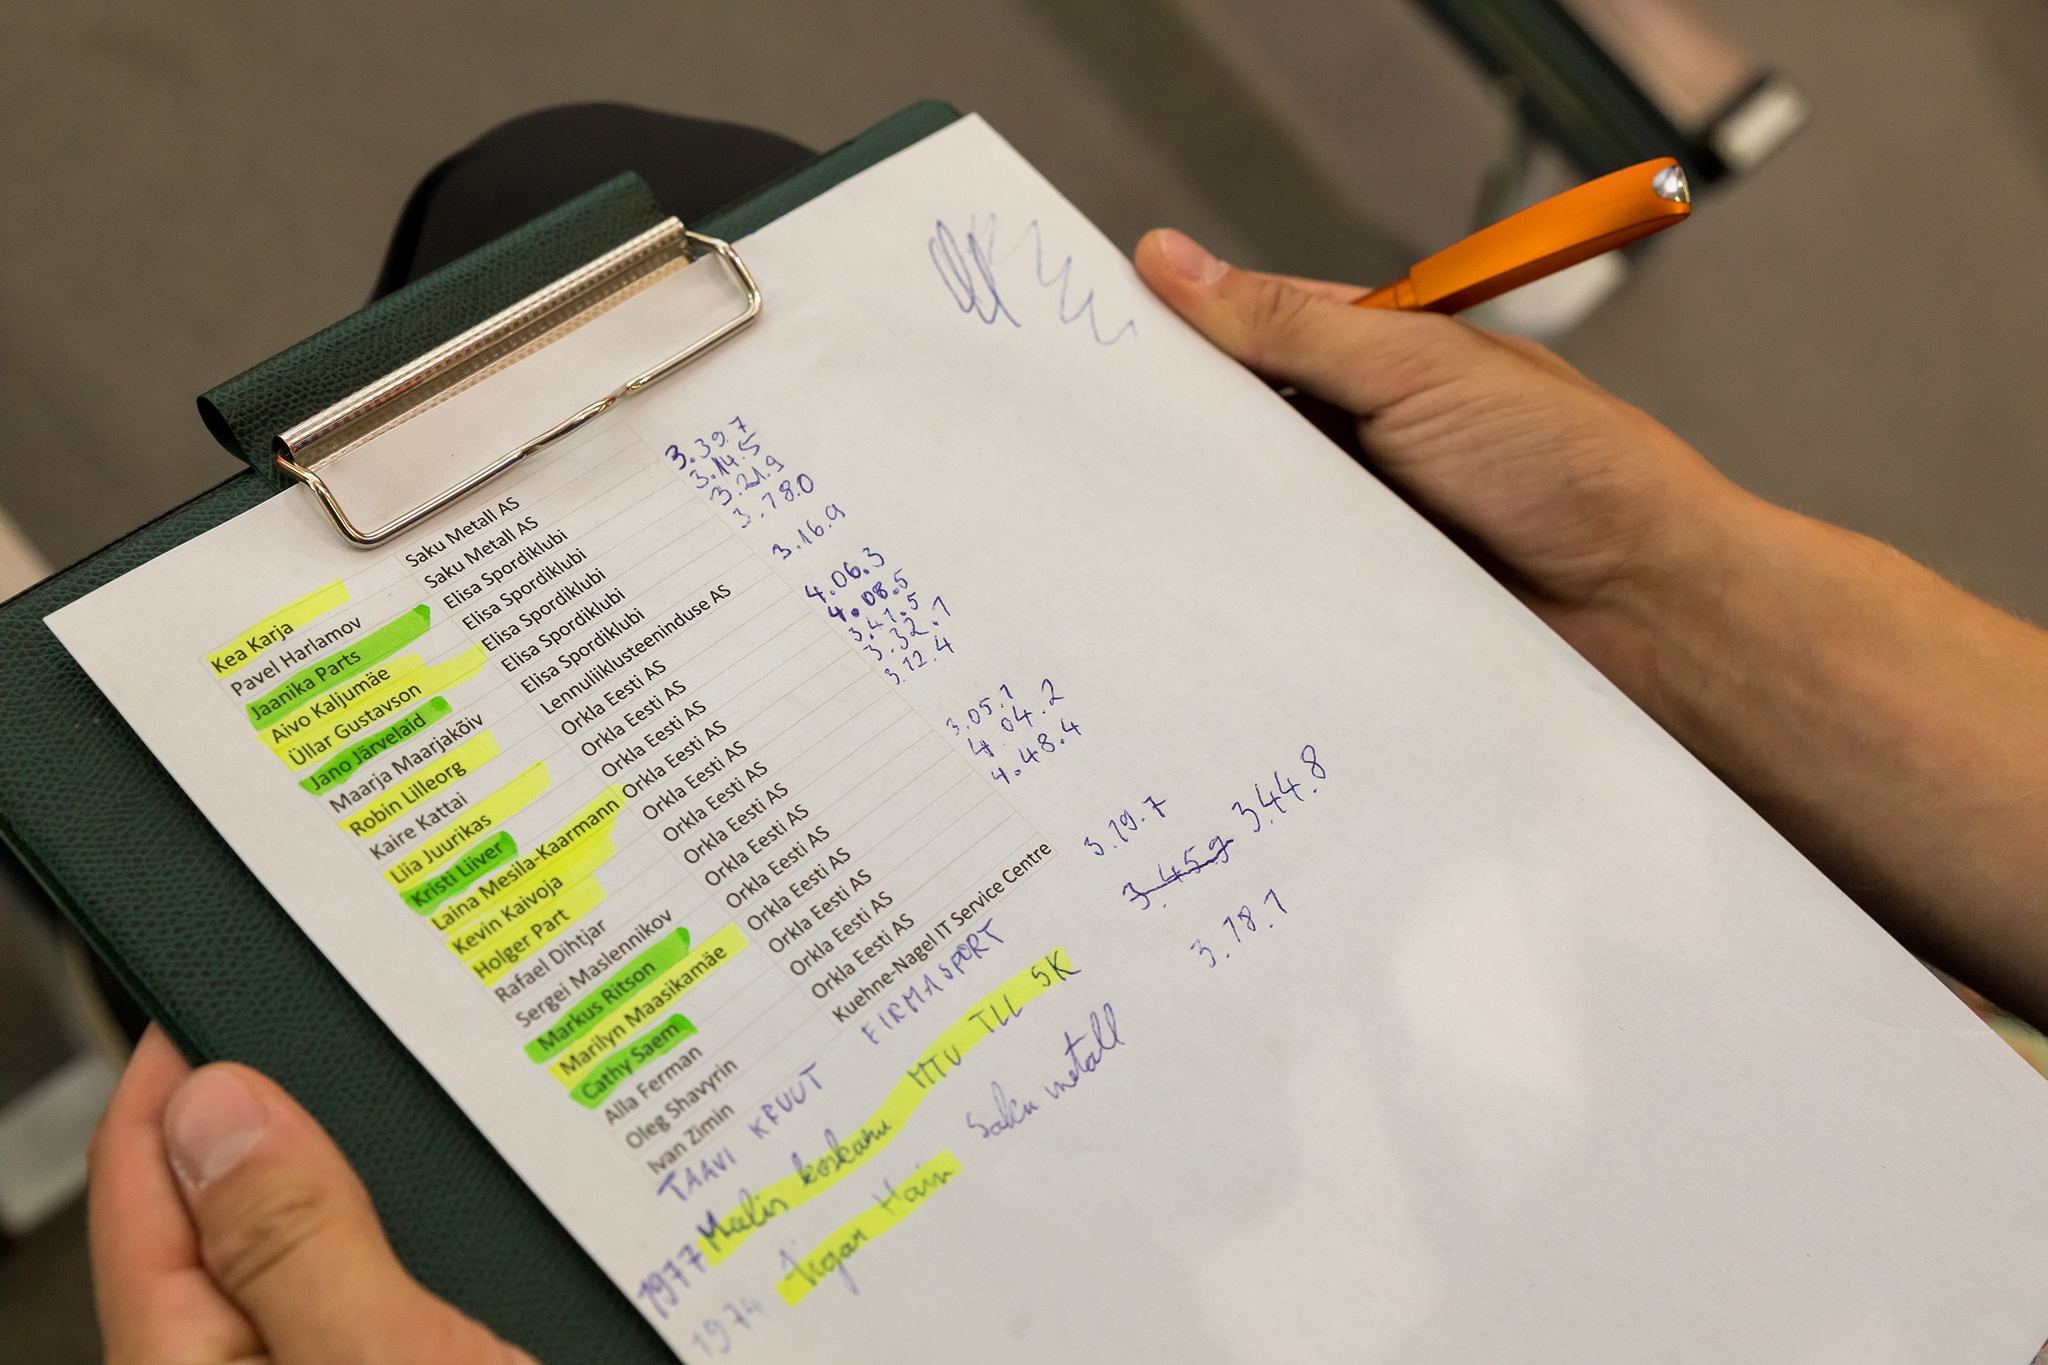 Kea Karja Saku Metall AS
Pavel Harlamov Saku Metall AS
Jaanika Parts Elisa Spordiklubi
Aivo Kaljumäe Elisa Spordiklubi
Üllar Gustavson Elisa Spordiklubi
Jano Järvelaid Elisa Spordiklubi
Maarja Maarjakõiv Elisa Spordiklubi
Robin Lilleorg Lennuliiklusteeninduse AS
Kaire Kattai Orkla Eesti AS
Liia Juurikas Orkla Eesti AS
Kristi Liiver Orkla Eesti AS
Laina Mesila-Kaarmann Orkla Eesti AS
Kevin Kaivoja Orkla Eesti AS
Holger Part Orkla Eesti AS
Rafael Dihtjar Orkla Eesti AS
Sergei Maslennikov Orkla Eesti AS
Markus Ritson Orkla Eesti AS
Marilyn Maasikamäe Orkla Eesti AS
Cathy Saem Orkla Eesti AS
Alla Ferman Orkla Eesti AS
Oleg Shavyrin Orkla Eesti AS
Ivan Zimin Kuehne-Nagel IT Service Centre
TAAVI KRUUT FIRMASPORT
1977 Meelis Koskaru MTÜ TLL SK
1974 Aigar Hain Saku metall
3.39.7
3.14.5
3.21.9
3.18.0
3.16.9
4.06.3
4.08.5
3.41.5
3.32.1
3.12.4
3.05.1
4.04.2
4.48.4
3.19.7
3.45.9 3.44.8
3.18.1